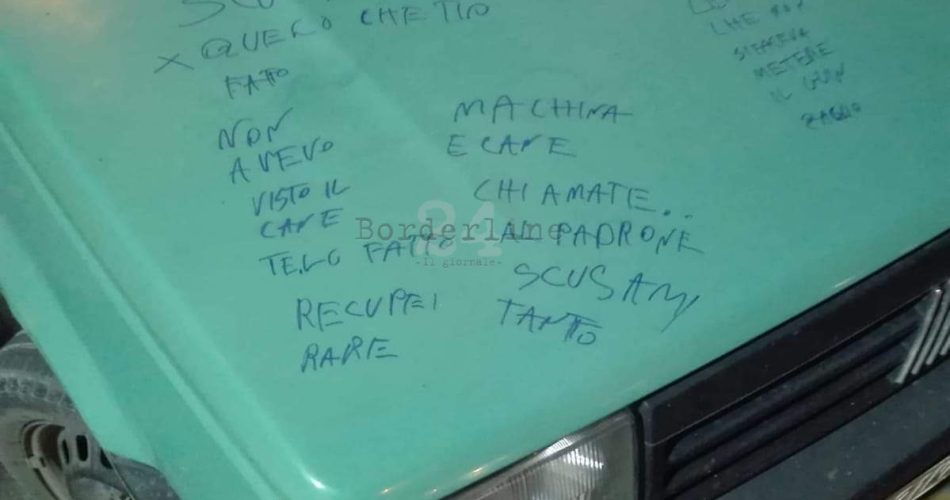 SCU
X QUELO CHE TIO
FATTO
NON
AVEVO
VISTO IL
CANE
TE.LO FATTO
RECUPEI
RARE
MACHINA
E CANE
CHIAMATE..
AL PADRONE
SCUSAMI
TANTO
CHE NON
SIFACEVA
METERE
IL GUIN
ZAGLIO
Borderline
24
-Il giornale-